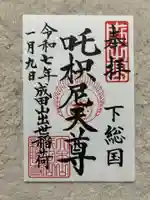 奉拝
下総国
吒枳尼天尊
令和七年
一月九日
成田山出世稲荷